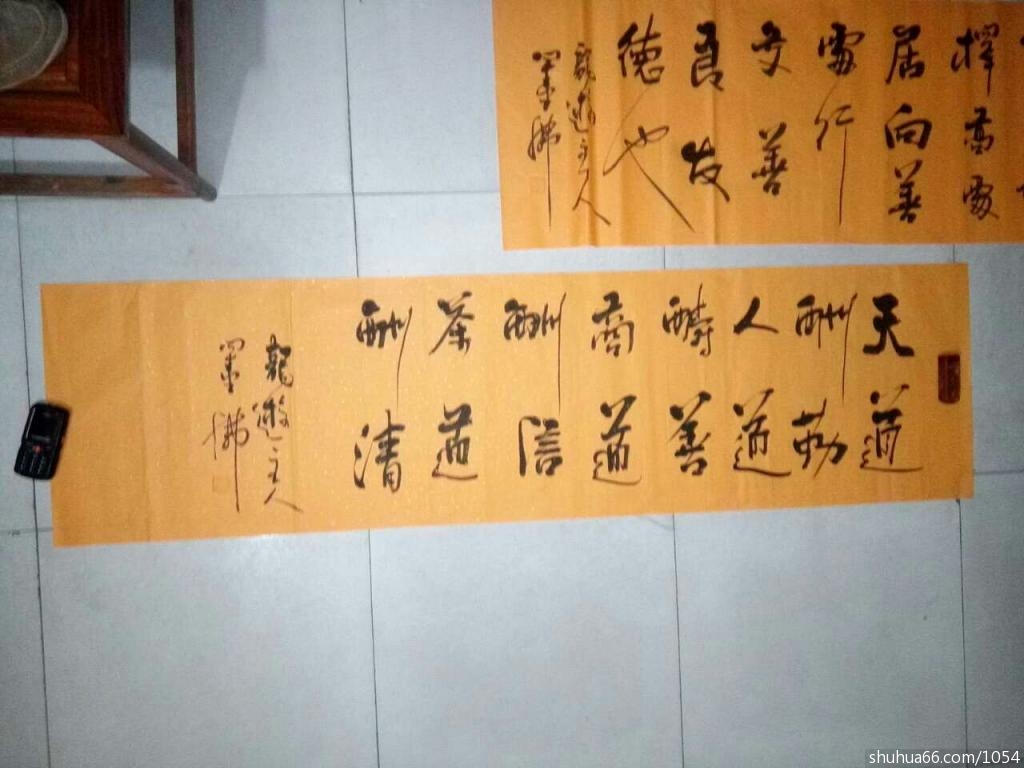 擇高處
居向善
處行
交善
良友
徳也
主人
墨佛
天道
酬勤
人道
醻善
商道
酬信
茶道
酬清
龍遊主人
墨佛
shuhua66.com/1054